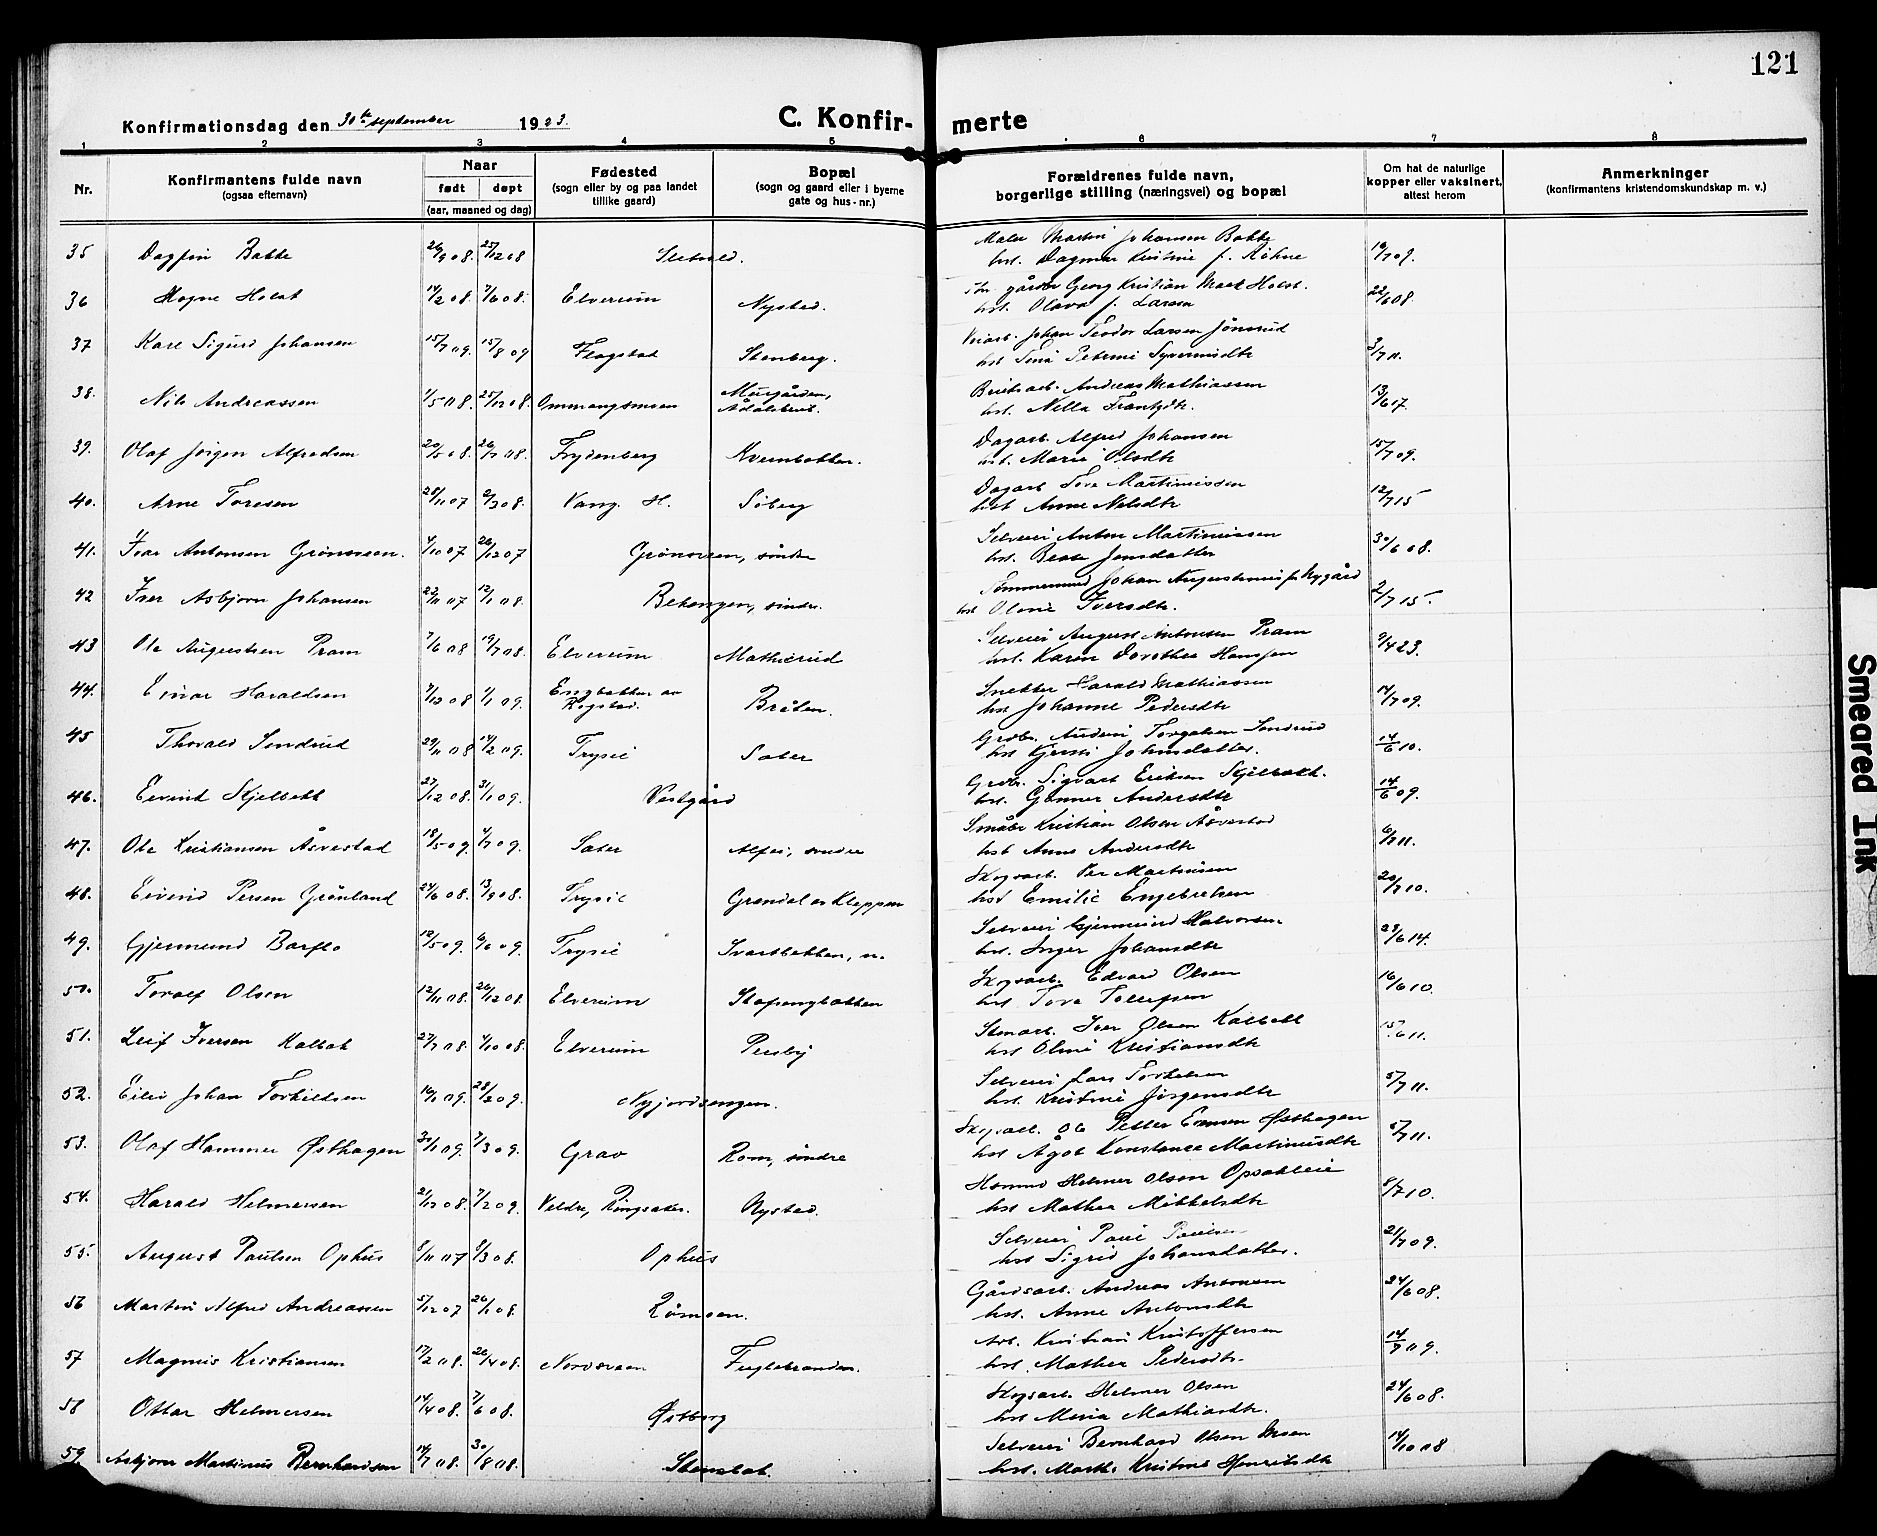 121
Konfirmationsdag den 30te september 1923.
C. Konfir-
merte
1 2 3 4 5 6 7 8
Nr.
Konfirmantens fulde navn
(ogsaa efternavn)
Naar
født døpt
(aar, maaned og dag)
Fødested
(sogn eller by og paa landet
tillike gaard)
Bopæl
(sogn og gaard eller i byerne
gate og hus-nr.)
Forældrenes fulde navn,
borgerlige stilling (næringsvei) og bopæl
Om hat de naturlige
kopper eller vaksinert,
attest herom
Anmerkninger
(konfirmantens kristendomskundskap m. v.)
35 Dagfin Bakke 26/9 08. 25/12 08
Maler Martin Johansen Bakke
hst. Dagmar Kristine f. Röhne 19/7 09.
36 Mogne Holst 14/2 08. 7/6 08. Elverum Nystad.
gårdbr Georg Kristian Holst.
hst. Olava f. Larsen 22/6 08.
37 Karl Sigurd Johansen 15/7 09. 15/8 09 Flagstad Stenberg.
Johan Teodor Larsen Jönsrud
hst. Petrine Syvertsdtr 3/7 11.
38. Nils Andreassen 1/5 08. 25/12 08. Ommangsmoen Murgården, Ådalsbruk.
Bruksarb. Andreas Mathiassen
hst. Nella Frantzdtr. 13/6 17.
39. Olaf Jörgen Alfredsen 20/5 08. 26/7 08. Frydenberg Kvernbakken.
Dagarb. Alfred Johansen
hst. Marie Olsdtr 15/7 09.
40. Arne Toresen 28/11 07 2/3 08. Vang. H. Söberg
Dagarb Tore Martinussen
hst Anne Nilsdtr 12/7 15
41. Ivar Antonsen Grönosen. 4/10 07 26/12 07 Grönosen, söndre
Selveier Anton Martinussen
hst. Beate Jensdatter 30/6 08.
42 Iver Asbjörn Johansen 22/11 07 12/1 08. Bekengen, söndre.
Tömmermand Johan Augustinus f. Nygård
hst Oline Iversdtr. 2/7 15.
43 Ole Augustsen Pram 7/6 08 19/7 08. Elverum Mathisrud
Selveier August Antonsen Pram
hst. Karen Dorothea Hansen 9/4 23.
44. Einar Haraldsen 7/12 08 1/1 09. Engbakken av Rogstad. Bråten.
Snekker Harald Mathiassen
hst Johanne Pedersdtr 14/7 09.
45 Thorald Sendrud 29/11 08 14/2 09. Trysil Sater
Grdbr. Torgalsen Sendrud
hst Kjersti Johnsdatter. 14/6 10.
46. Eivind Skjelbakk 27/12 08. 31/1 09. Vestgård
Grdbr. Sigvart Eriksen Skjelbakk.
hst. Gunner Andersdtr 14/6 09.
47. Ole Kristiansen Åsvestad 18/5 09. 4/7 09. Sater Alfei, söndre
Småbr Kristian Olsen Åsvestad
hst Anne Andersdtr 6/7 11.
48. Eivind Persen Grönland 24/6 08. 13/9 08. Trysil Grøndal av Kleppen
Skogsarb. Per Martinsen
hst Emilie Engebretsen 20/7 10.
49. Gjermund Barflo 12/5 09. 6/6 09. Trysil Svartbakken, n.
Selveier Gjermund Halvorsen
hst. Inger Johansdtr 28/6 14.
50. Toralf Olsen 12/11 08. 26/12 08. Elverum Stafengbakken
Skogsarb. Edvard Olsen
hst Tora Tollefsen 16/6 10.
51. Leif Iversen Kalbak 27/7 08. 4/10 08. Elverum
Stenarb. Iver Olsen Kalbakk
hst Oline Kristiansdtr 15/6 11.
52. Eiliv Johan Torkildsen 16/1 09. 28/2 09. Nyjordsengen.
Selveier Lars Torkelsen
hst. Kristine Jörgensdtr 5/7 11.
53. Olaf Hammer Østhagen 30/1 09. 7/3 09. Grav Rom, söndre
Skogsarb. Ole Petter Østhagen
hst Ågot Konstance Martinusdtr 5/7 11.
54. Harald Helmersen 21/12 08. 7/2 09. Veldre, Ringsaker. Nystad.
Helmer Olsen Opsakleie
hst Mathea Mikkelsdtr 8/7 10.
55. August Paulsen Ophus 8/11 07 8/3 08. Ophus
Selveier Paul Paulsen
hst Sigrid Johansdatter. 21/7 09.
56 Martin Alfred Andreassen 5/12 07 26/1 08. Römoen.
Gårdsarb. Andreas Antonsen
hst. Anne Antonsdtr 24/6 08.
57 Magnus Kristiansen 17/2 08. 26/4 08. Nordsveen Fuglstranden.
Arb. Kristian Kristoffersen
hst. Mathea Pedersdtr. 14/9 09.
58 Ottar Helmersen 14/4 08. 7/6 08. Østberg
Skogsarb. Helmer Olsen
hst Mina Mathiasdtr. 24/6 08.
59. Asbjörn Martinus Bernhardsen 14/7 08. 30/8 08. Stenstat.
Selveier Bernhard Olsen Moen
hst. Marthe Kristine Henriksdtr 14/10 08
Smeared Ink